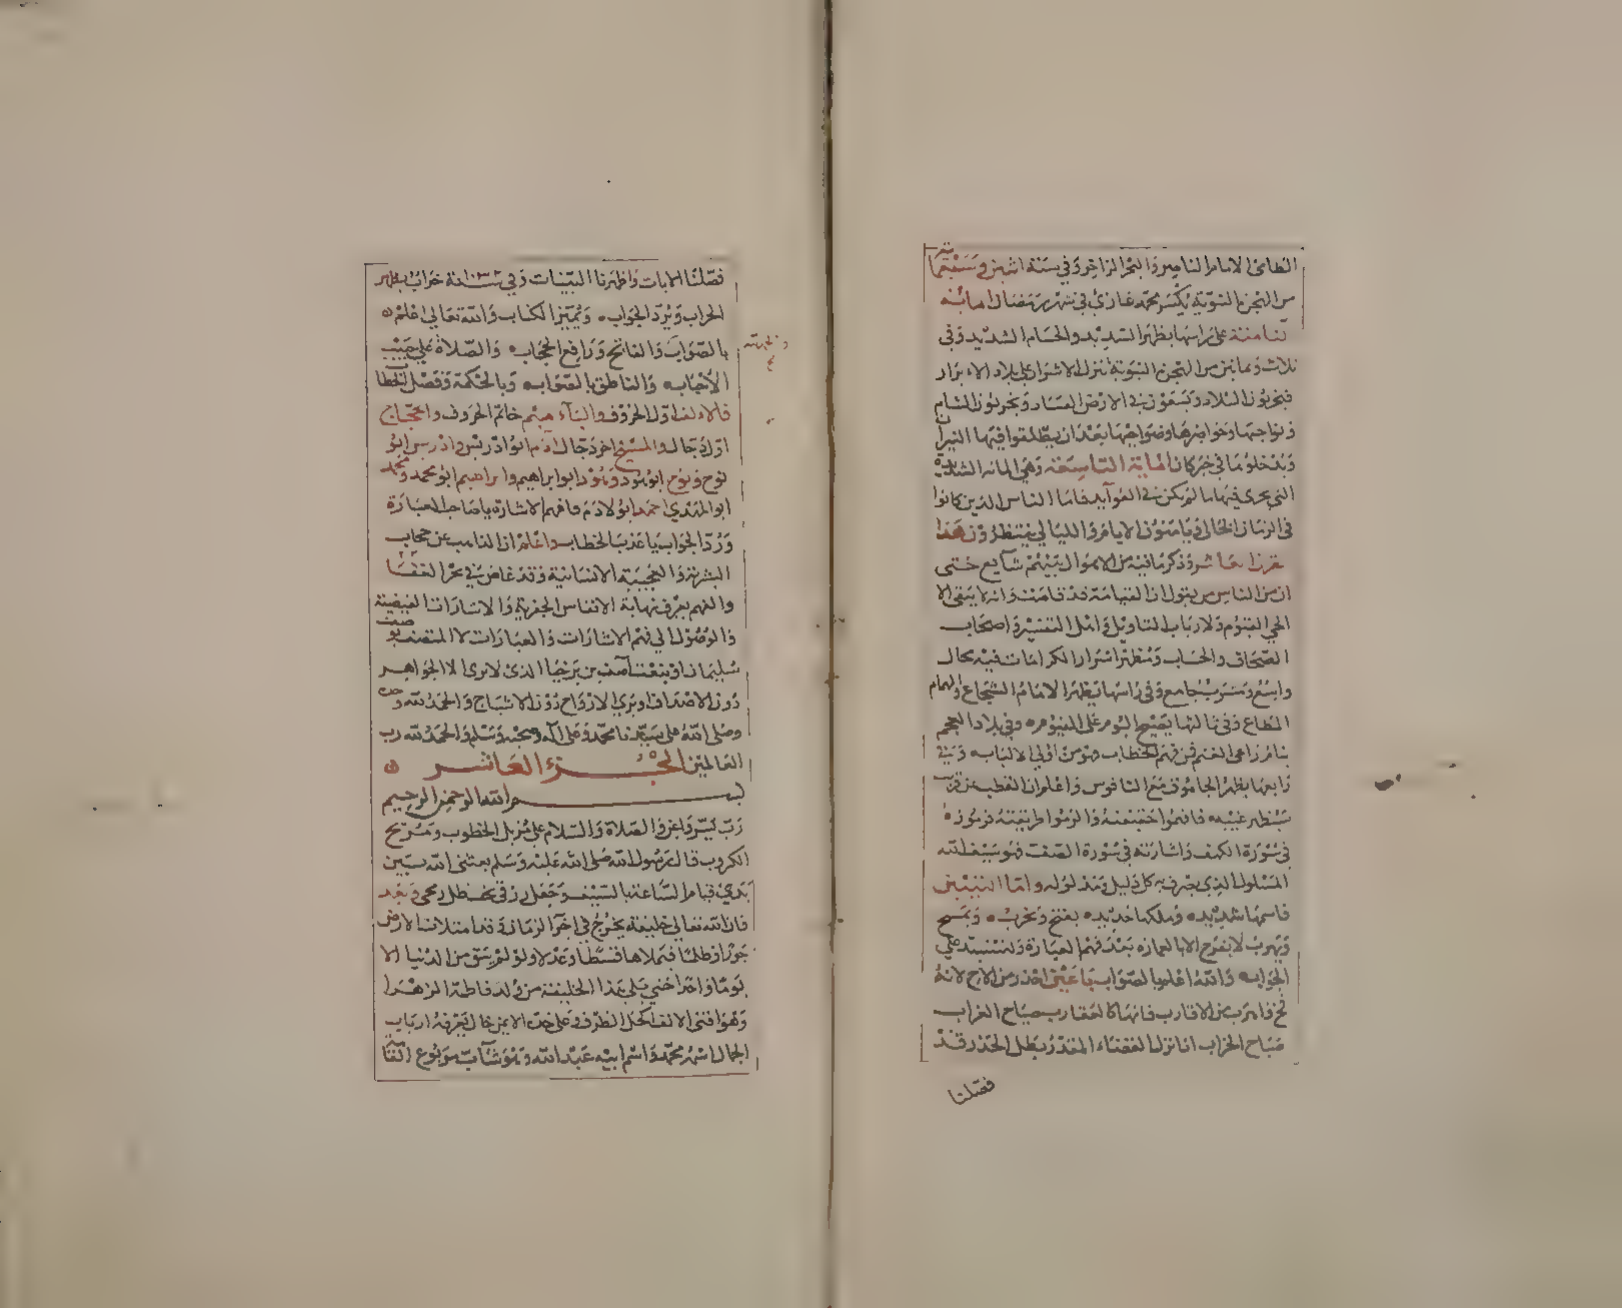 الطاعن الامام الناصر والبحر الزاخر وفي سنة اثنين وسبعين
من الهجرة النبوية يكسر محمد غازي في شهر رمضان المائة
الثامنة على راسها يظهر السديد والحسام الشديد وفي
ثلاث وثمانين من الهجرة النبوية تنزل الاشرار على بلاد الابرار
فيخربون البلاد ويسعون في الارض الفساد ويخربون الشام
ونواحيها وحواضرها وضواحيها بعد ان يطلقوا فيها النيران
ويدخلوها في خبر كان المائة التاسعة وهي المائة الشديدة
التي يجري فيها ما لم يكن في العوايد فاما الناس الذين كانوا
في الزمان الخالي ويامنون الايام والليالي ينتظرون هذا
القرن العاشر وذكر ما فيه من الاهوال بينهم شايع حتى
ان من الناس من يقول ان القيامة قد قامت وانه لا يبقى الا
الحي القيوم ولارباب التاويل واهل التفسير واصحاب
الصحاف والحساب ومظهر اسرار الكرامات فيه مجال
واسع ومشرب جامع وفي راسها يظهر الامام الشجاع والهمام
المطاع وفي ثالثها يصيح البوم على الفيوم وفي بلاد العجم
ينام راعي الغنم فمن فهم الخطاب فهو من اولي الالباب وفي
رابعها يظهر الجاموق مع الناقوس واعلم ان القطب عن قريب
سيظهر غيبه فافهموا حقيقته والزموا طريقته فرموزه
في سورة الكهف واشارته في سورة الصف فهو سيف الله
المسلول الذي يعرف به كل دليل ومدلوله واما التبيين
فاسمها شديد وملكها جديد يفتح ويخرب ويمسح
ويهرب لا يفرح الا بالعمارة بعد فهم العبارة
الجواب والله اعلم بالصواب يا عين احذر من الاخ لانه
فخ واهرب من الاقارب فانها كالعقارب صياح الغراب
صباح الخراب اذا نزل القضاء المقدر بطل الحذر وقد
فصلنا
فصلنا الايات واظهرنا البينات وفي سنة ١٠٣٢ خراب يظهر
الخراب ويرد الجواب ويميز الكتاب والله تعالى اعلم
بالصواب والفاتح ورافع الحجاب والصلاة على حبيب
الاحباب والناطق بالصواب وبالحكمة وفصل الخطاب
فالالف اول الحروف والياء هيم خاتم الحروف والحجاج
اول دجال والمسيخ اخر دجال ادم ابو ادريس وادريس ابو
نوح ونوح ابو هود وهود ابو ابراهيم وابراهيم ابو محمد ومحمد
ابو المهدي احمد ابو لادم فافهم الاشارة يا صاحب العبارة
ورد الجواب يا عذب الخطاب واعلم ان الغايب عن حجاب
البشرية والعجيبة الانسانية وقد غاص في بحر الفضا
والفهم يعرف نهاية الانفاس الجفرية والاشارات الغيبية
والوصول الى فهم الاشارات والعبارات لا المتصف بوصف
سليمان او بنعت آصف بن برخيا الذي لا يرى الا الجواهر
دون الاصداف او يرى الارواح دون الاشباح والحمد لله وحده
وصلى الله على سيدنا محمد وعلى آله وصحبه وسلم والحمد لله رب
العالمين الجزء العاشر
بسم الله الرحمن الرحيم
رب يسر واعن والصلاة والسلام على مزيل الخطوب ومفرج
الكروب قال رسول الله صلى الله عليه وسلم بعثني الله بين
يدي قيام الساعة بالسيف وجعل رزقي تحت ظل رمحي وبعد
فان الله تعالى خليفة يخرج في اخر الزمان وقد امتلات الارض
جورا وظلما فيملاها قسطا وعدلا ولو لم يبق من الدنيا الا
يوما واحدا حتى يلي هذا الخليفة من ولد فاطمة الزهرا
وهو اقنى الانف اكحل الطرف وعلى خده الايمن خال يعرفه ارباب
الحال اسمه محمد واسم ابيه عبد الله وهو شاب مربوع القا